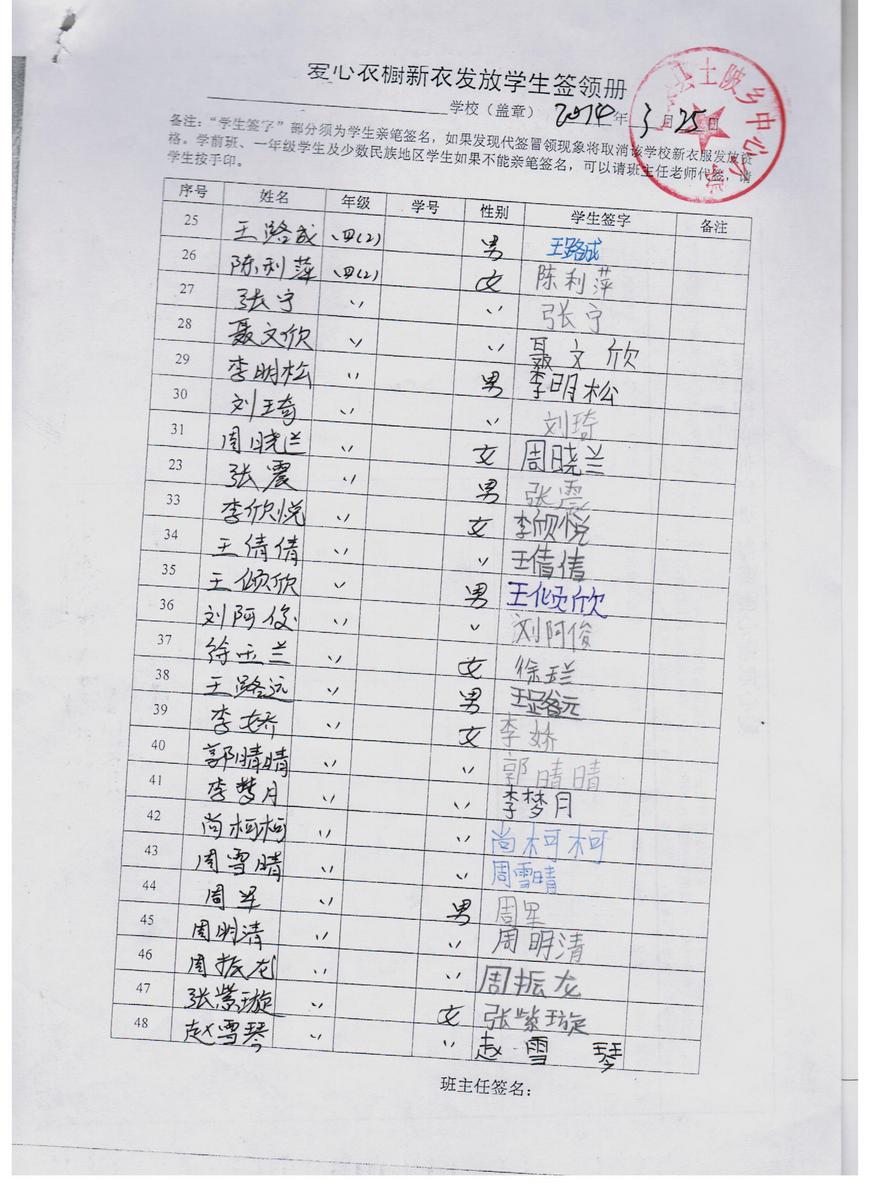 爱心衣橱新衣发放学生签领册
学校（盖章） 2014年 3月 25日
县土陂乡中心小学
备注：“学生签字”部分须为学生亲笔签名，如果发现代签冒领现象将取消该学校新衣服发放资
格。学前班、一年级学生及少数民族地区学生如果不能亲笔签名，可以请班主任老师代签，请
学生按手印。
序号 姓名 年级 学号 性别 学生签字 备注
25 王路成 四(2) 男 王路成
26 陈利萍 四(2) 女 陈利萍
27 张宁 〃 〃 张宁
28 聂文欣 〃 〃 聂文欣
29 李明松 〃 男 李明松
30 刘琦 〃 〃 刘琦
31 周晓兰 〃 女 周晓兰
23 张震 〃 男 张震
33 李欣悦 〃 女 李欣悦
34 王倩倩 〃 〃 王倩倩
35 王倾欣 〃 男 王倾欣
36 刘阿俊 〃 〃 刘阿俊
37 徐玉兰 〃 女 徐玉兰
38 王路远 〃 男 王路元
39 李娇 〃 女 李娇
40 郭晴晴 〃 〃 郭晴晴
41 李梦月 〃 〃 李梦月
42 尚柯柯 〃 〃 尚柯柯
43 周雪晴 〃 〃 周雪晴
44 周军 〃 男 周军
45 周明清 〃 〃 周明清
46 周振龙 〃 〃 周振龙
47 张紫璇 〃 女 张紫璇
48 赵雪琴 〃 〃 赵雪琴
班主任签名：